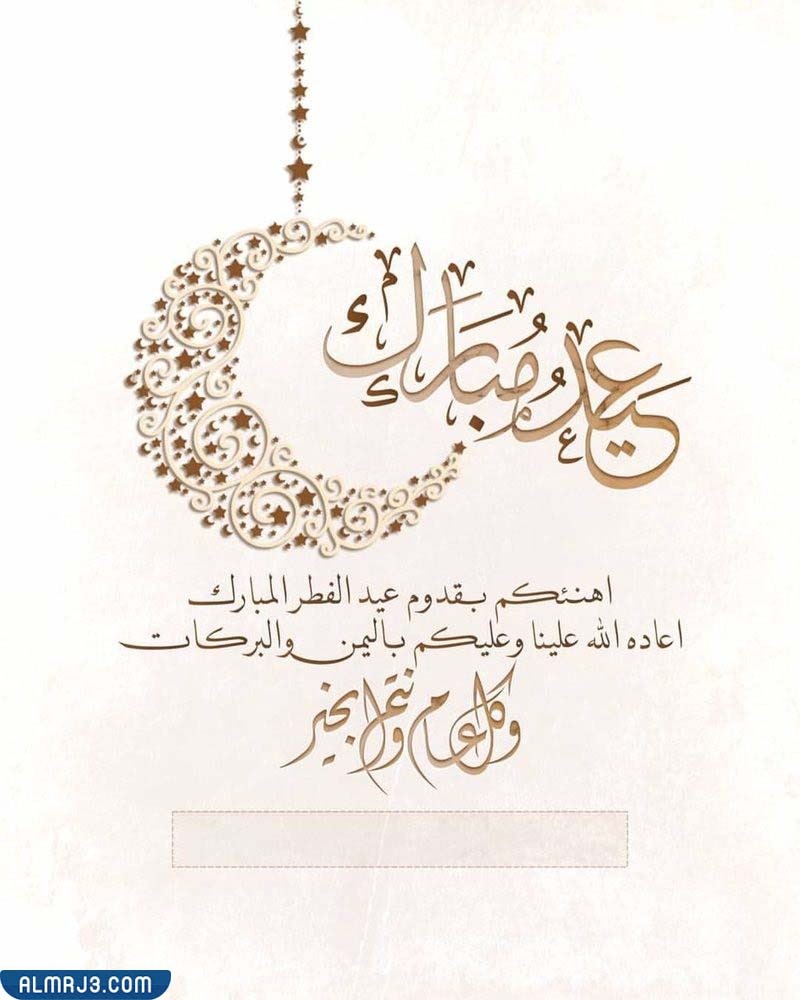 عيد مبارك
اهنئكم بقدوم عيد الفطر المبارك
اعاده الله علينا وعليكم باليمن والبركات
وكل عام وانتم بخير
ALMRJ3.COM